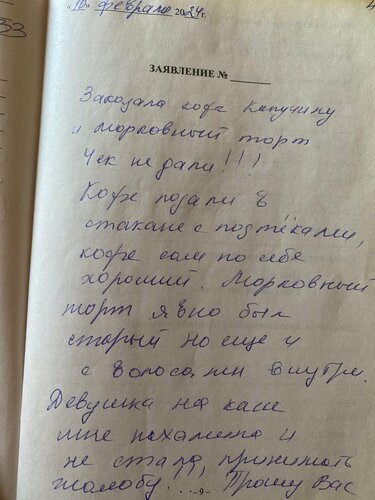 «10» февраля 2024г.
ЗАЯВЛЕНИЕ №
Заказала кофе Капучину
и Морковный торт
Чек не дали!!!
Кофе подали в
стакане с подтёками,
кофе сам по себе
хороший. Морковный
торт явно был
старый но еще и
с волосами внутри.
Девушка на кассе
мне нахамила и
не стала, принимать
жалобу!.. Прошу Вас
-9-
33